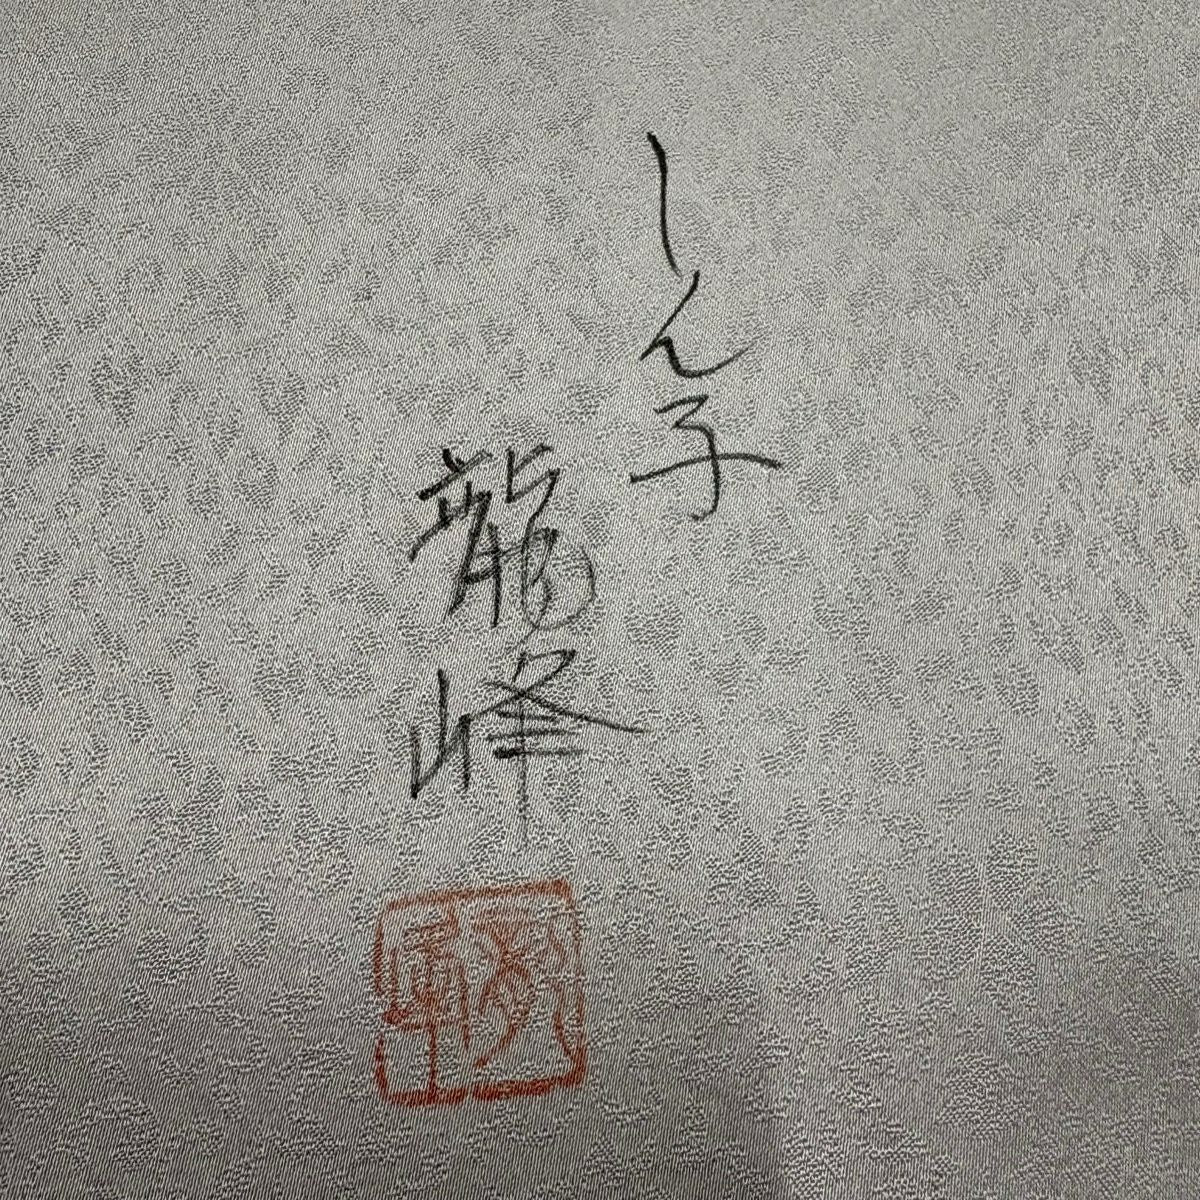 しん子
龍峰